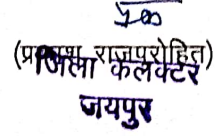 (प्रकाश राजपुरोहित)
जिला कलेक्टर
जयपुर